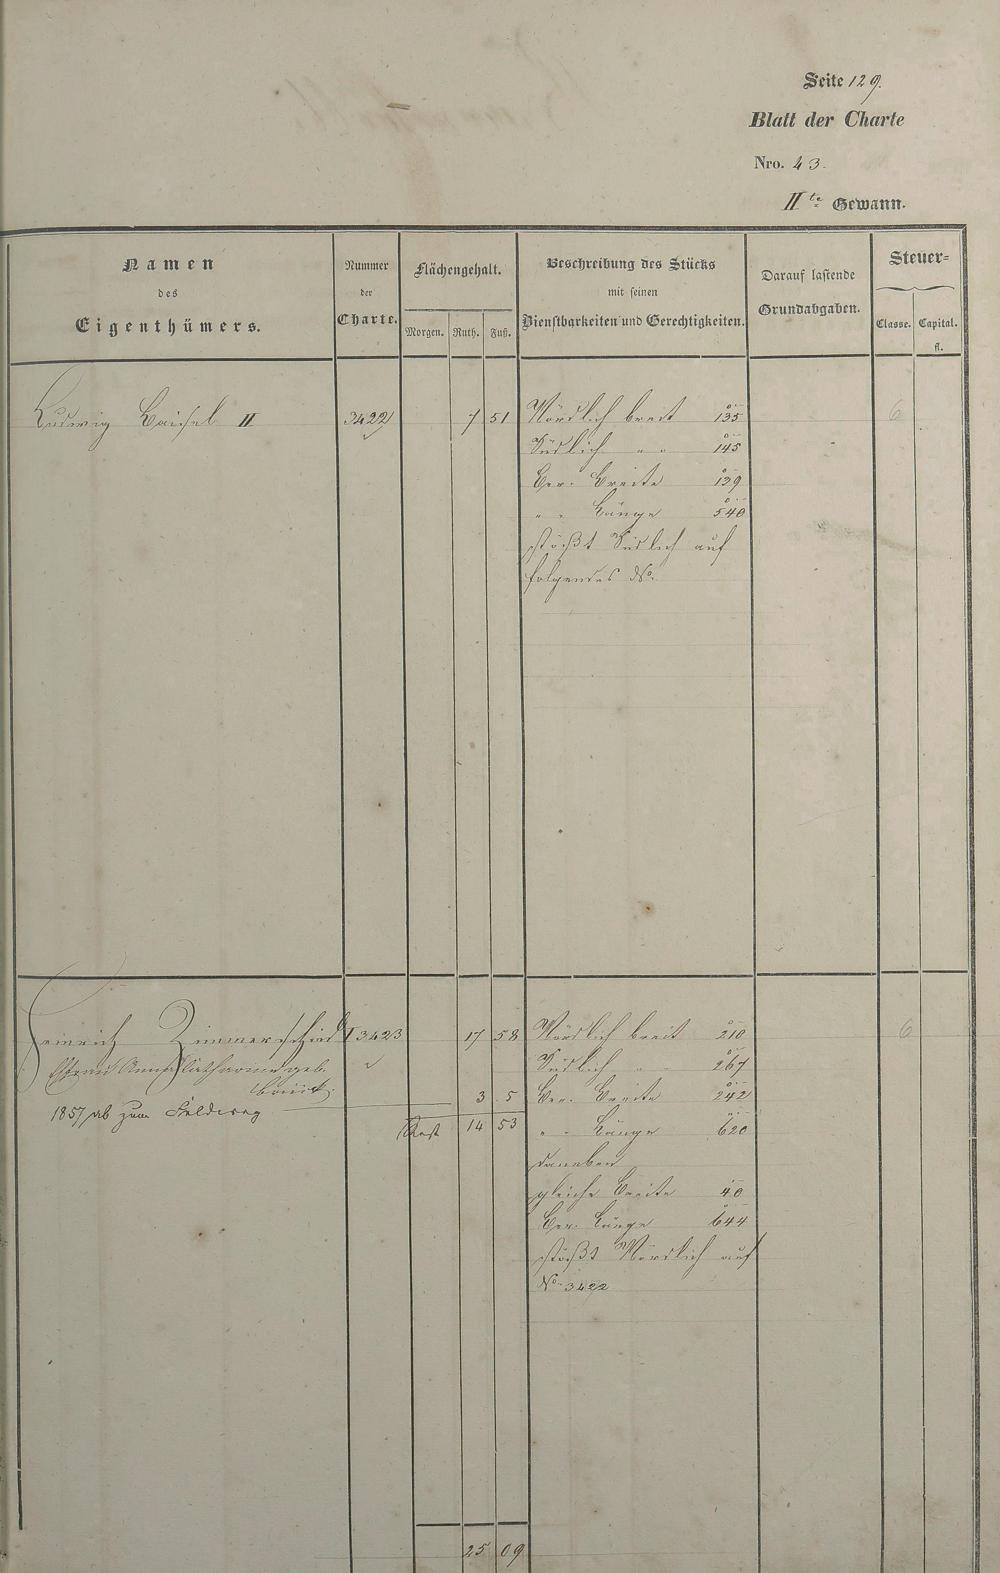 Seite 129.
Blatt der Charte
Nro. 43.
IIte Gewann.
Namen
des
Eigenthümers.
Nummer
der
Charte.
Flächengehalt.
Morgen. Ruth. Fuß.
Beschreibung des Stücks
mit seinen
Dienstbarkeiten und Gerechtigkeiten.
Darauf lastende
Grundabgaben.
Steuer-
Classe. Capital.
fl.
Ludwig II 3422 7 51 Nördlich breit 135 6
Südlich " " 145
Ber. Breite 139
" " Länge 540
stößt Südlich auf
folgendes No.
Heinrich Zimmerschied I 3423 17 58 Nördlich breit 210 6
Ehefrau Anna Catharine geb. Südlich " 267
3 5 Ber. Breite 242
1857 ab zum Feldweg
Rest 14 53 " " Länge 620
daneben
gleiche Breite 40
Ber. Länge 644
stößt Nördlich auf
No. 3422
25 09